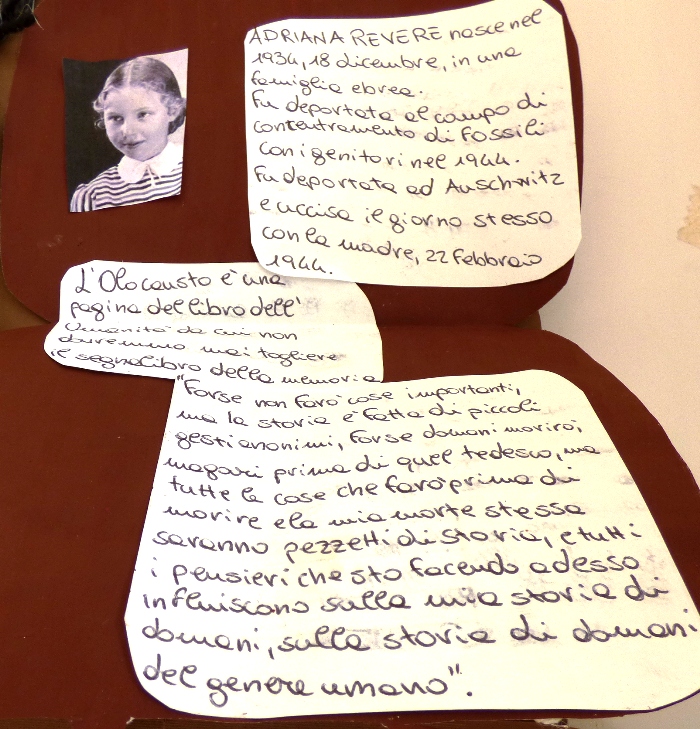 ADRIANA REVERE nasce nel
1934, 18 dicembre, in una
famiglia ebrea.
Fu deportata al campo di
contentramento di Fossili
con i genitori nel 1944.
Fu deportata ad Auschwitz
e uccisa il giorno stesso
con la madre, 22 Febbraio
1944.
L'Olocausto è una
pagina del libro dell'
Umanità da cui non
dovremmo mai togliere
il segnalibro della memoria
"Forse non farò cose importanti,
ma la storia è fatta di piccoli
gesti anonimi, forse domani morirò,
magari prima di quel tedesco, ma
tutte le cose che farò prima di
morire e la mia morte stessa
saranno pezzetti di storia, e tutti
i pensieri che sto facendo adesso
influiscono sulla mia storia di
domani, sulla storia di domani
del genere umano".